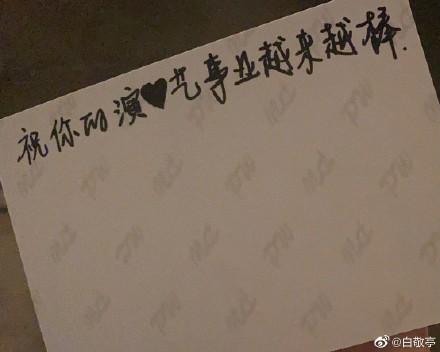 祝你的演♥艺事业越来越棒.
@白敬亭